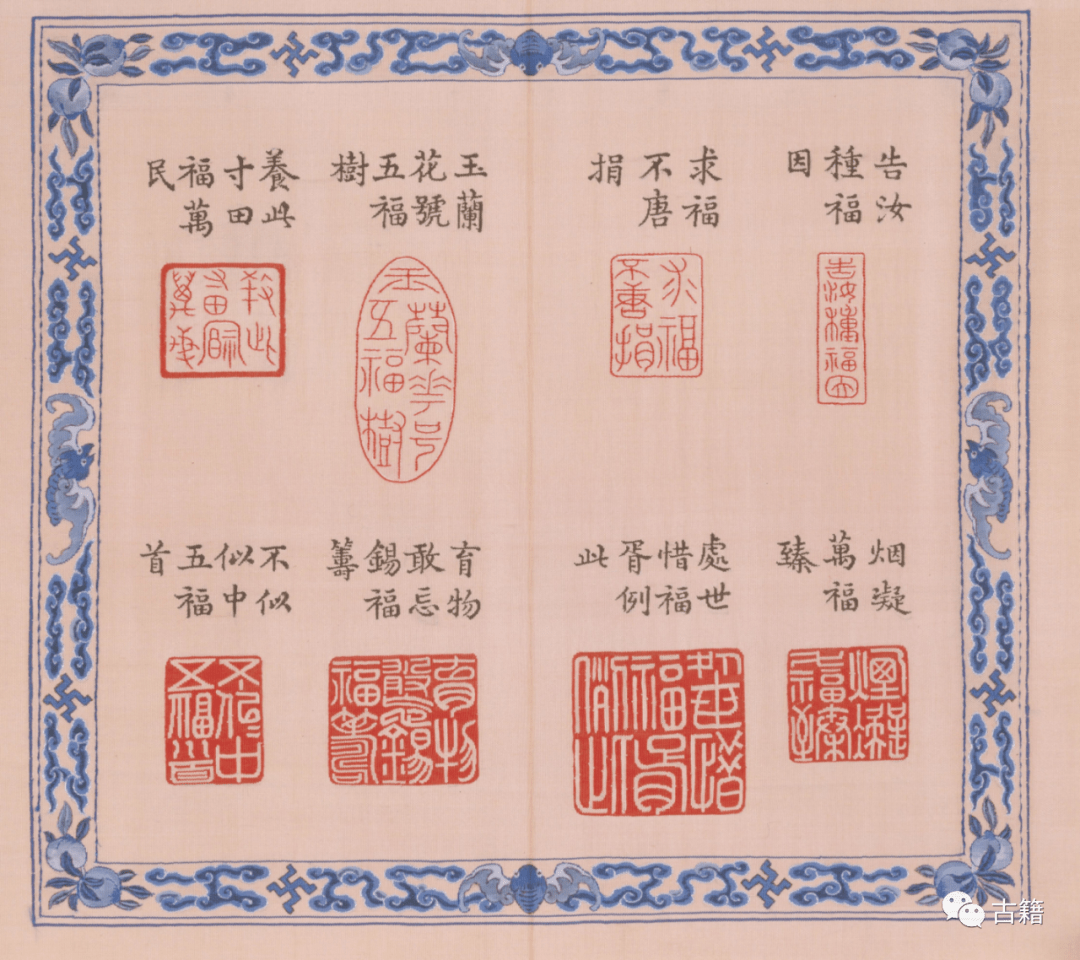 告汝
種福
因
求福
不唐
捐
玉蘭
花號
五福
樹
養此
寸田
福萬
民
烟凝
萬福
臻
處世
惜福
胥例
此
育物
敢忘
錫福
籌
不似
似中
五福
首
告汝種福因
求福
不唐捐
古籍